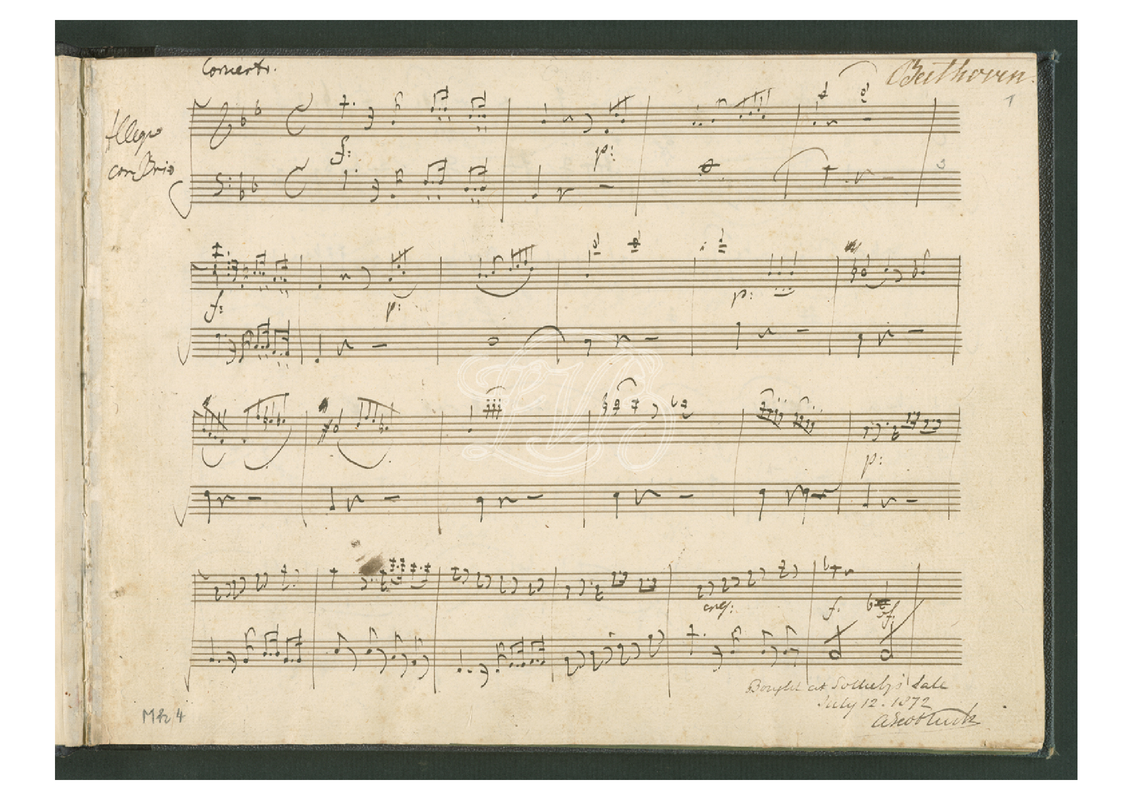 Concerto.
Beethoven.
1
Allegro
con Brio
f:
p:
f:
p:
p:
p:
cresc:
f.
f.
Bought at Sotheby's Sale
July 12. 1872
Mh 4